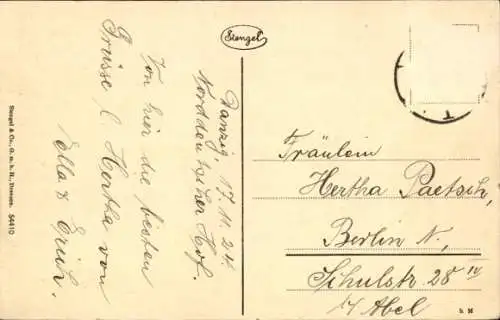 Stengel
Danzig, 17.11.24.
Norddeutscher Hof.
Von hier die besten
Grüsse l. Hertha von
Ella & Erich.
Fräulein
Hertha Paetsch,
Berlin N,
Schulstr. 28 IV
b/ Abel
Stengel & Co., G. m. b. H., Dresden. 54410
b. M